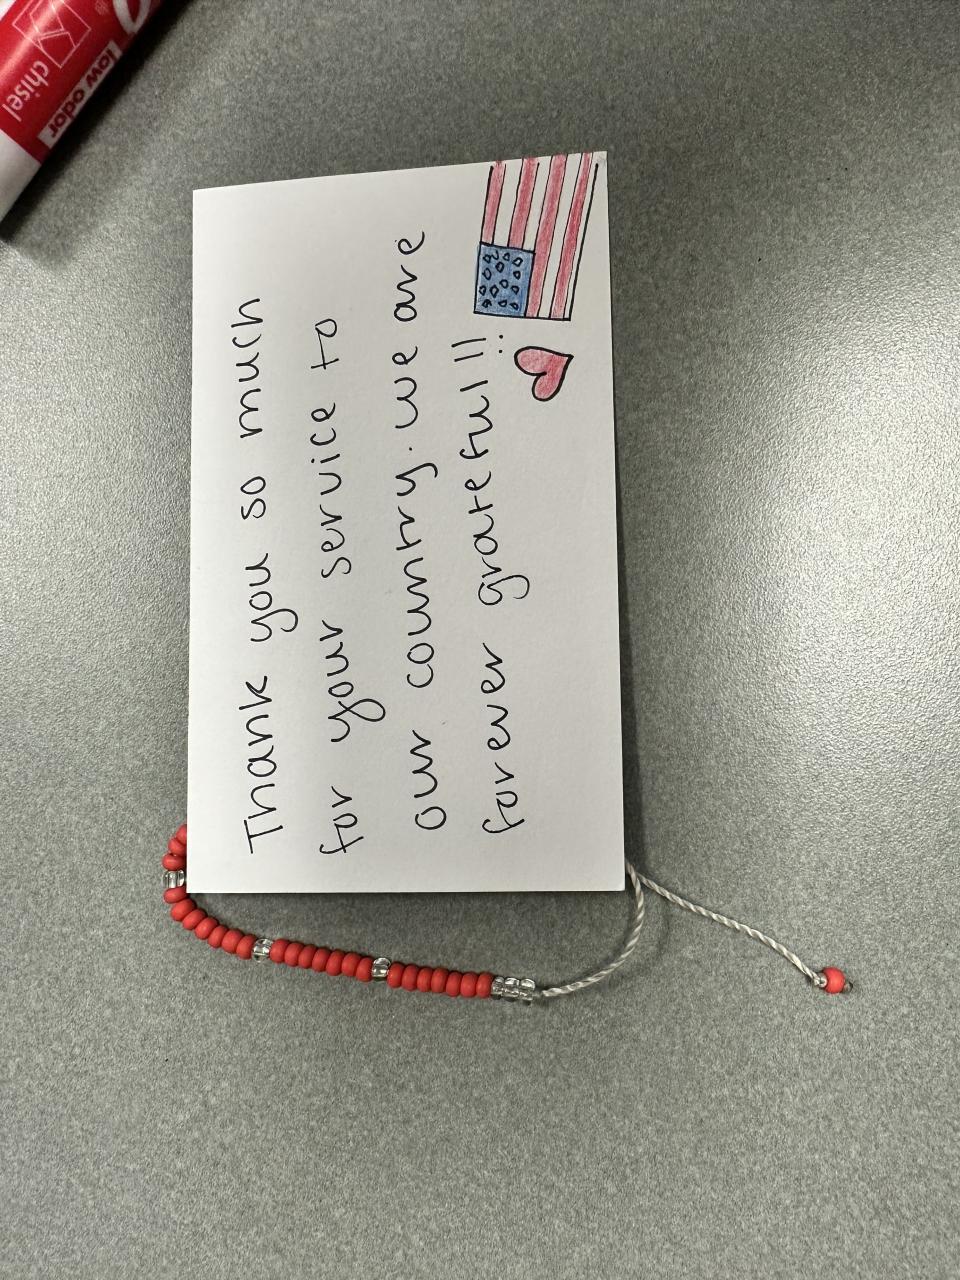 Thank you so much
for your service to
our country. we are
forever grateful!!
low odor
chisel